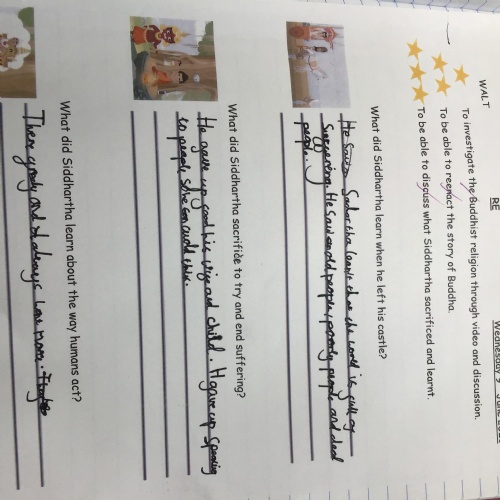 Wednesday 9
RE
WALT
To investigate the Buddhist religion through video and discussion.
To be able to reenact the story of Buddha.
To be able to discuss what Siddhartha sacrificed and learnt.
What did Siddhartha learn when he left his castle?
He the world is full of
suggering. He saw old people, poorly people and dead
peopl.
What did Siddhartha sacrifice to try and end suffering?
He gave up good his wige and child. H gave up speacing
to people so he can
What did Siddhartha learn about the way humans act?
There gredy and always